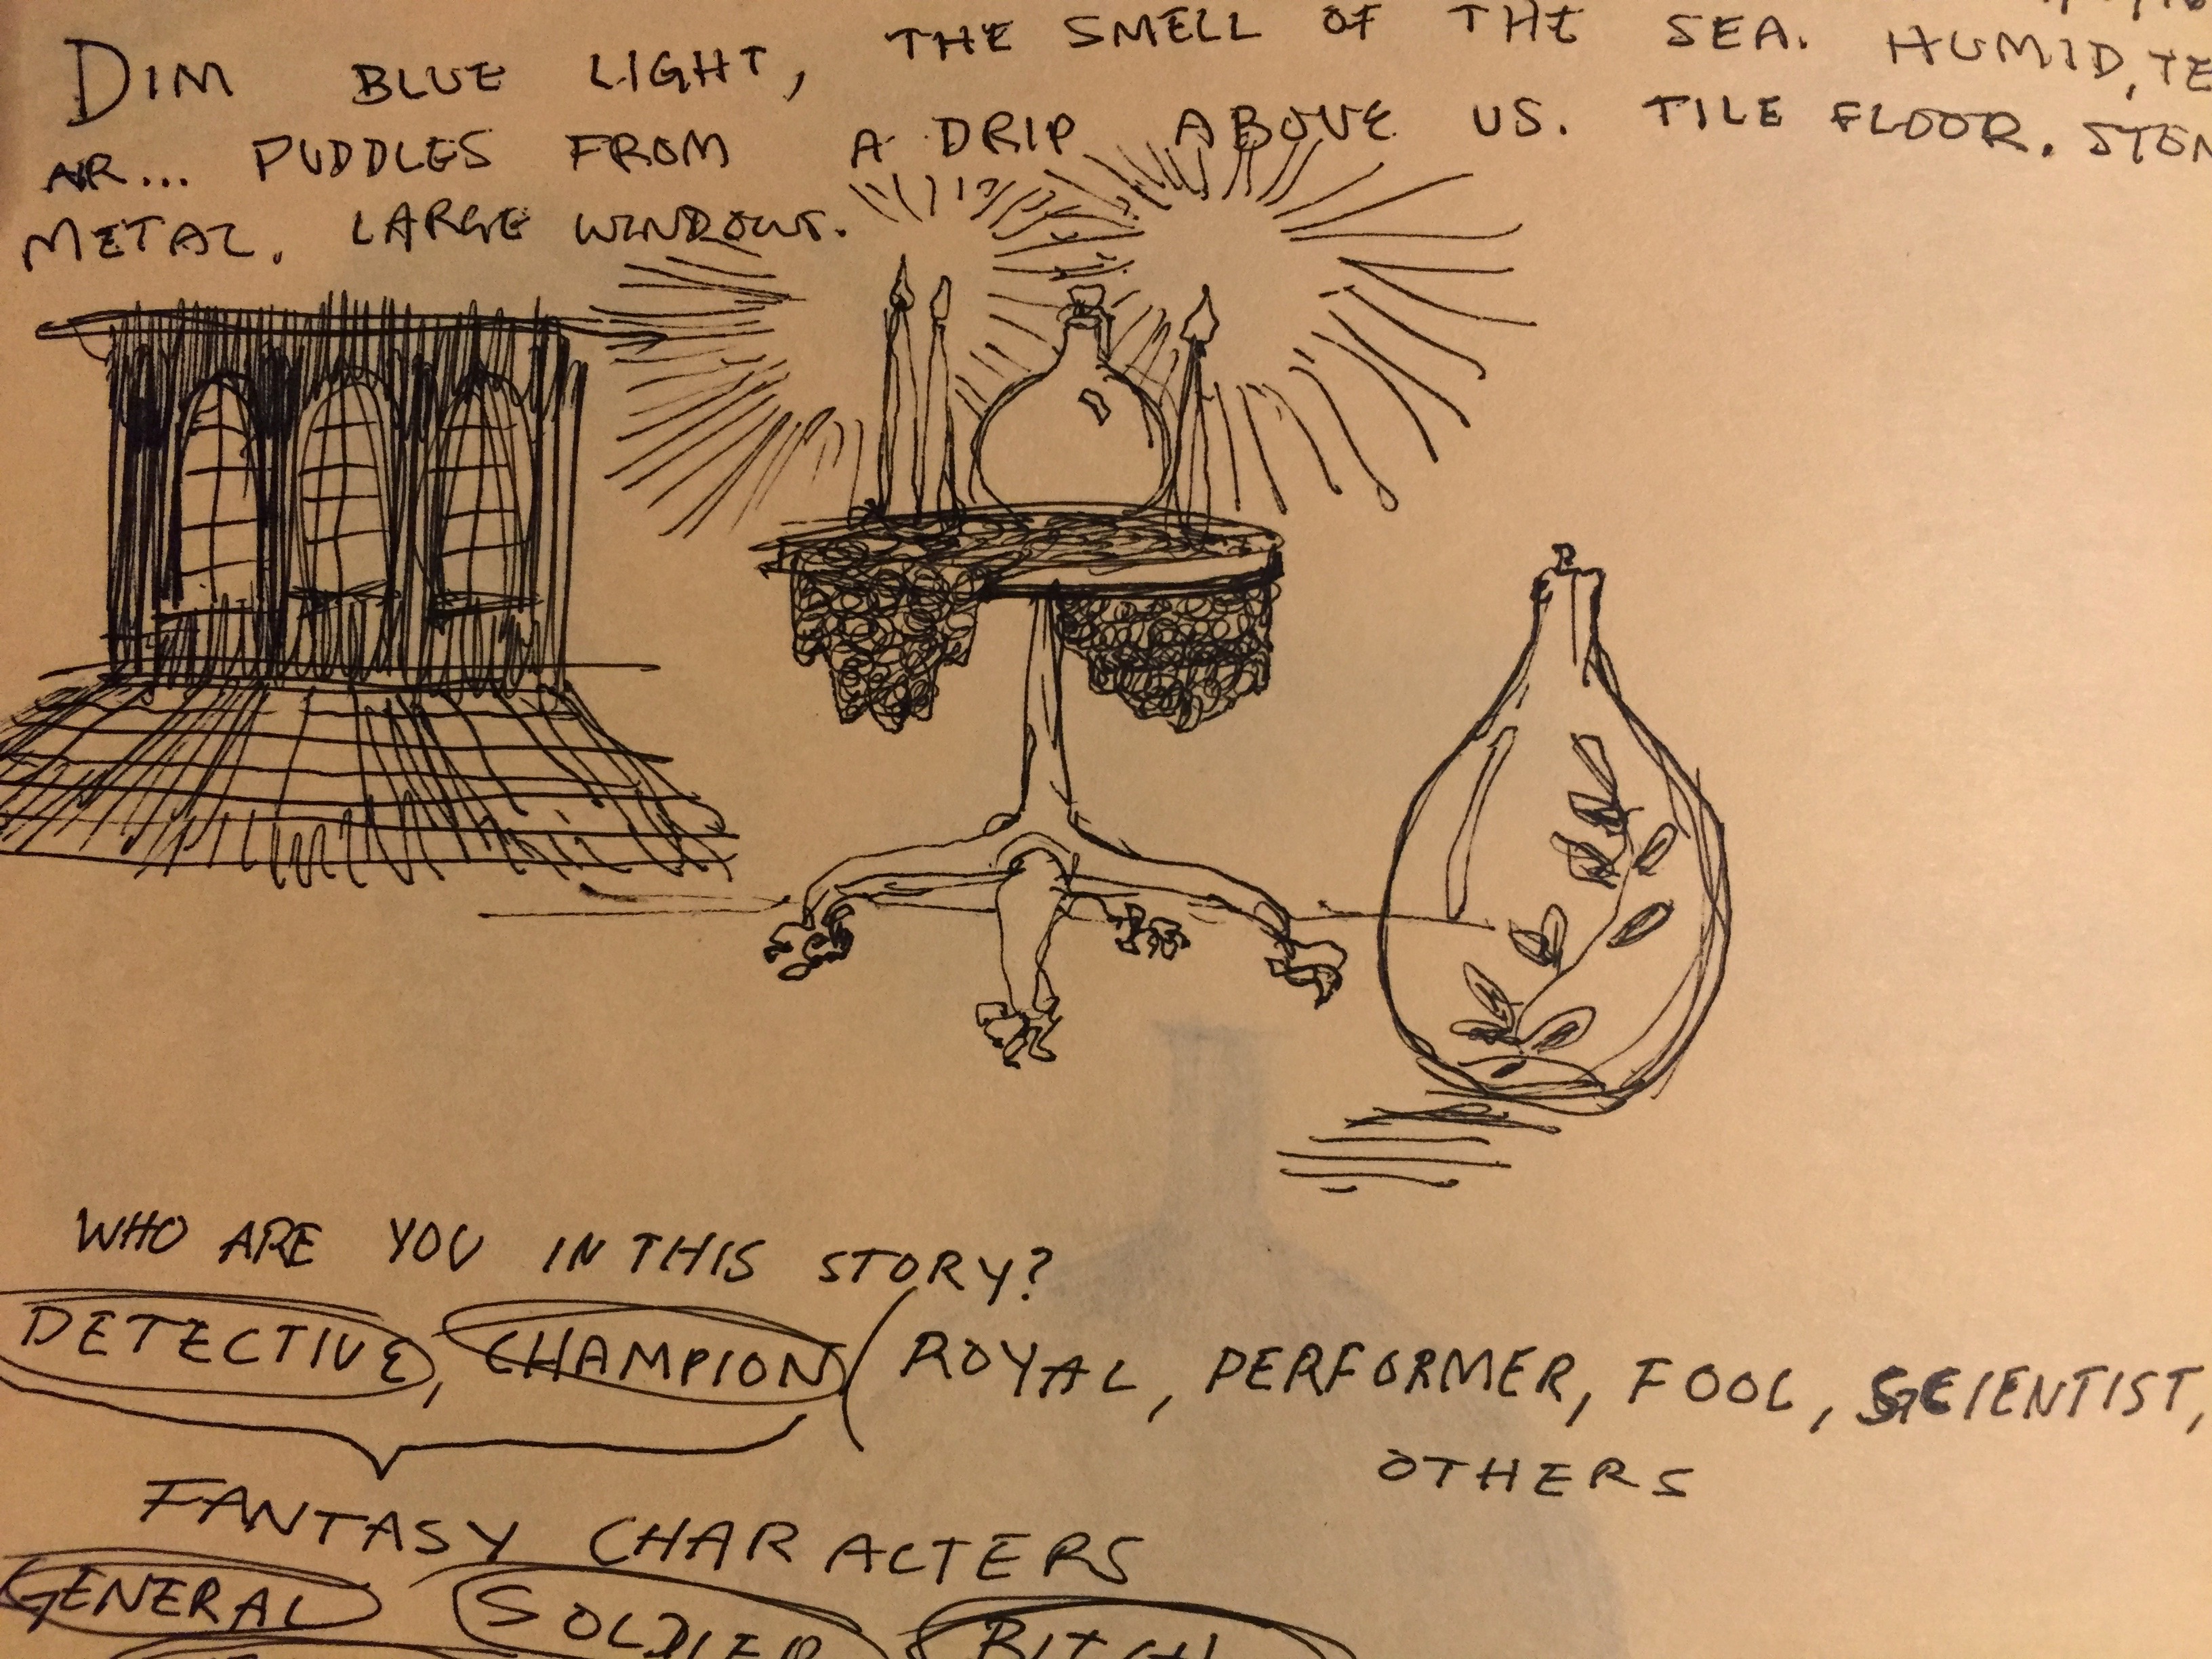 DIM BLUE LIGHT, THE SMELL OF THE SEA. HUMID, TE
AIR... PUDDLES FROM A DRIP ABOVE US. TILE FLOOR. STON
METAL. LARGE WINDOWS.
WHO ARE YOU IN THIS STORY?
DETECTIVE, CHAMPION ( ROYAL, PERFORMER, FOOL, SCIENTIST,
OTHERS
FANTASY CHARACTERS
GENERAL SOLDIER BITCH